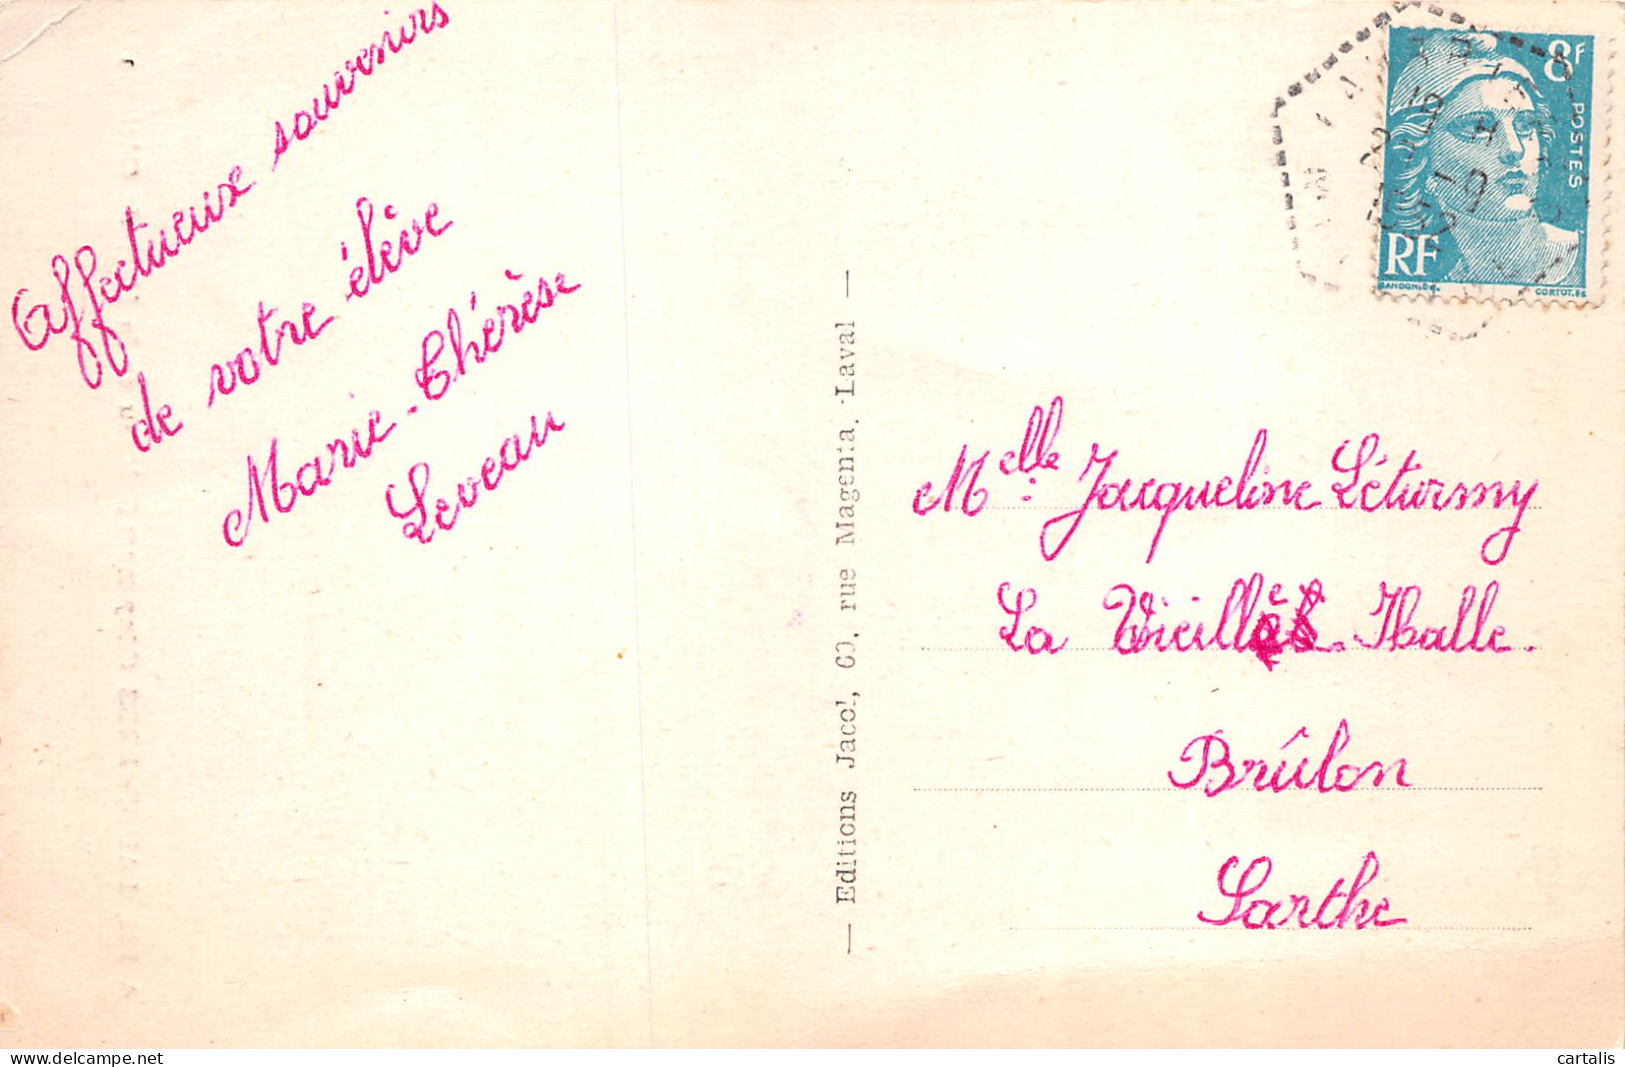 Affectueux souvenirs
de votre élève
Marie-Thérèse
Leveau
— Editions Jacol, 60, rue Magenta, Laval —
8F
POSTES
RF
GANDON.DEL.
CORTOT.SC
Melle: Jacqueline Léturmy
La Vieille Halle.
Brûlon
Sarthe
www.delcampe.net
cartalis